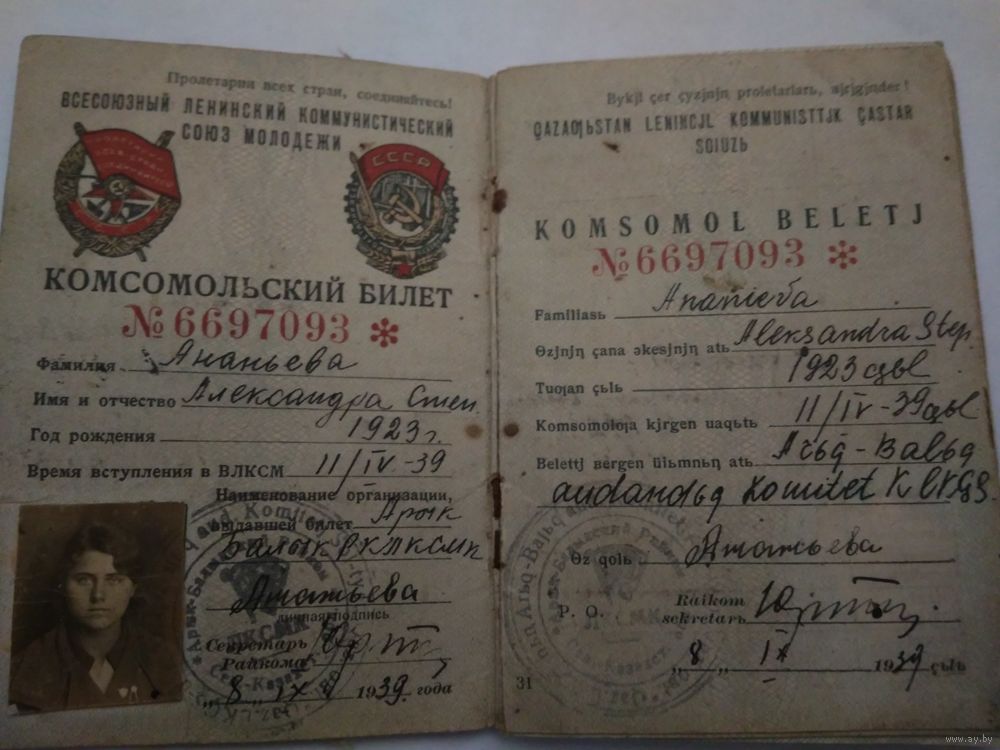 Пролетарии всех стран, соединяйтесь!
ВСЕСОЮЗНЫЙ ЛЕНИНСКИЙ КОММУНИСТИЧЕСКИЙ
СОЮЗ МОЛОДЕЖИ
СССР
КОМСОМОЛЬСКИЙ БИЛЕТ
№ 6697093 *
Фамилия Ананьева
Имя и отчество Александра Степ
Год рождения 1923 г.
Время вступления в ВЛКСМ 11/IV-39
Наименование организации,
выдавшей билет Арык
Балык РКЛКСМК
Ананьева
личная подпись
Секретарь
Райкома
"8" IX 1939 года
Bykjl çer çyzjnjn proletarlarь, ʙjrjgjnder!
QAZAƢЬSTAN LENINCJL KOMMUNISTTJK ÇASTAR
SOIUZЬ
KOMSOMOL BELETJ
№ 6697093 *
Familiasь Ananieva
Ɵzjnjꞑ çana əkesjnjꞑ atь Aleksandra Step
Tuƣan çьlь 1923 çьl
Komsomolƣa kjrgen uaqьtь 11/IV-39 çьl
Beletti bergen üiьmnьꞑ atь Arьq-Balьq
audandьq komitet
Ɵz qolь Ананьева
P. O.
Raikom
sekretarь
"8" IX 1939 çьlь
31
www.ay.by